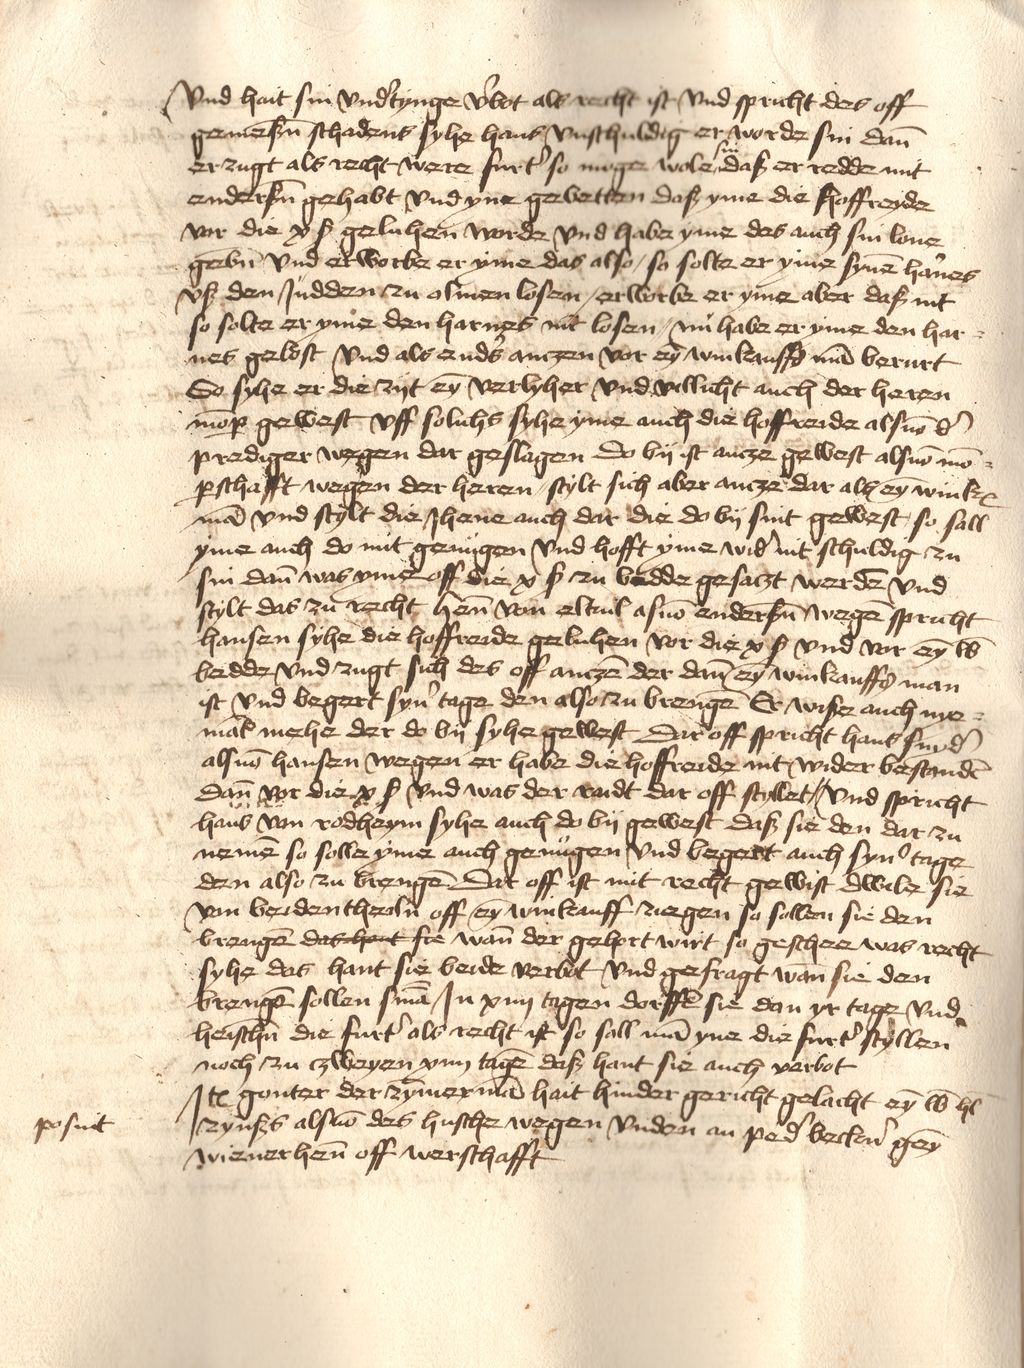 Und hait sin und(er)tzinge v(er)bot als recht ist Und spricht des off
gemeß(e)n schadens syhe hans unschuldig er worde sin dan(n)
er zugt als recht were furt(er) so moge wole sin daß er redde mit
enderß(e)n gehabt Und yme gebetten daß yme die hoffreyde
vor die x ß geluhen worde Und habe yme des auch sin lone
gebn Und erworbe er yme das also / so solte er yme syne(n) harnes
uß den Judden zu olmen losen / erworbe er yme aber daß nit
so solte er yme den harnes nit losen / nu habe er yme den har=
nes gelost Und als end(er)s anczen vor ey(n) winkauffß ma(n) berurt
So syhe er die zijt ey(n) verlyher Und villicht auch der heren
mo(m)p(er) gewest Uff solichs syhe yme auch die hoffreide als(o) vo(n) d(er)
prediger wegen dar geslagen do bij ist ancze gewest als(o) vo(n) mo(m)=
p(er)schafft wegen der heren / stylt sich aber ancze dar als ey(n) winkß
ma(n) Und stylt die Jhene auch dar die do bij sint gewest / so sall
yme auch do mit genugen Und hofft yme wid(er) nit schuldig zu
sin dan(n) was yme off die x ß zu bedde gesaczt werde(n) Und
stylt das zu recht hen(ne) von eltvil als(o) vo(n) enderß(e)n wege(n) spricht
hansen syhe die hoffreide geluhen vor die x ß Und vor ey(n) lb
bedde Und zugt sich des off ancze(n) der dan(n) ey(n) winkauffß man
ist Und begert syn(er) tage den also zu brenge(n) Er wiße auch nye=
mä(n)s mehe der do bij syhe gewest Dar off spricht hans smyd(er)
als(o) vo(n) hansen wegen er habe die hoffreide nit wider bestande(n)
dan(n) vor die x ß Und was der raidt dar off styllet // Und spricht
hans von rodheym syhe auch do bij gewest daß sie den dar zu
neme(n) so solle yme auch genugen Und begert auch syn(er) tage
den also zu brenge(n) Dar off ist mit recht gewist dwile sie
von beiden theiln off ey(n) winkauff ziegen so sollen sie den
brenge(n) das hant sie wan(n) der gehort wirt so geschee was recht
syhe das hant sie beide verbot Und gefragt wan(n) sie den
brenge(n) sollen s(e)n(tentia) In xiiij tagen dorffe(n) sie dan yr tage Und
heisch(e)n die furt(er) als recht ist so sall ma(n) yne die furt(er) styllen
noch zu czweyen xiiij tage(n) daß hant sie auch verbot
It(em) gonter der zymerma(n) hait hinder gericht gelacht ey(n) lb hl(r)
zynßs als(o) vo(n) des husche wegen Unden an ped(er) becker gey(n)
wienerhen(ne) off werschafft
po suit